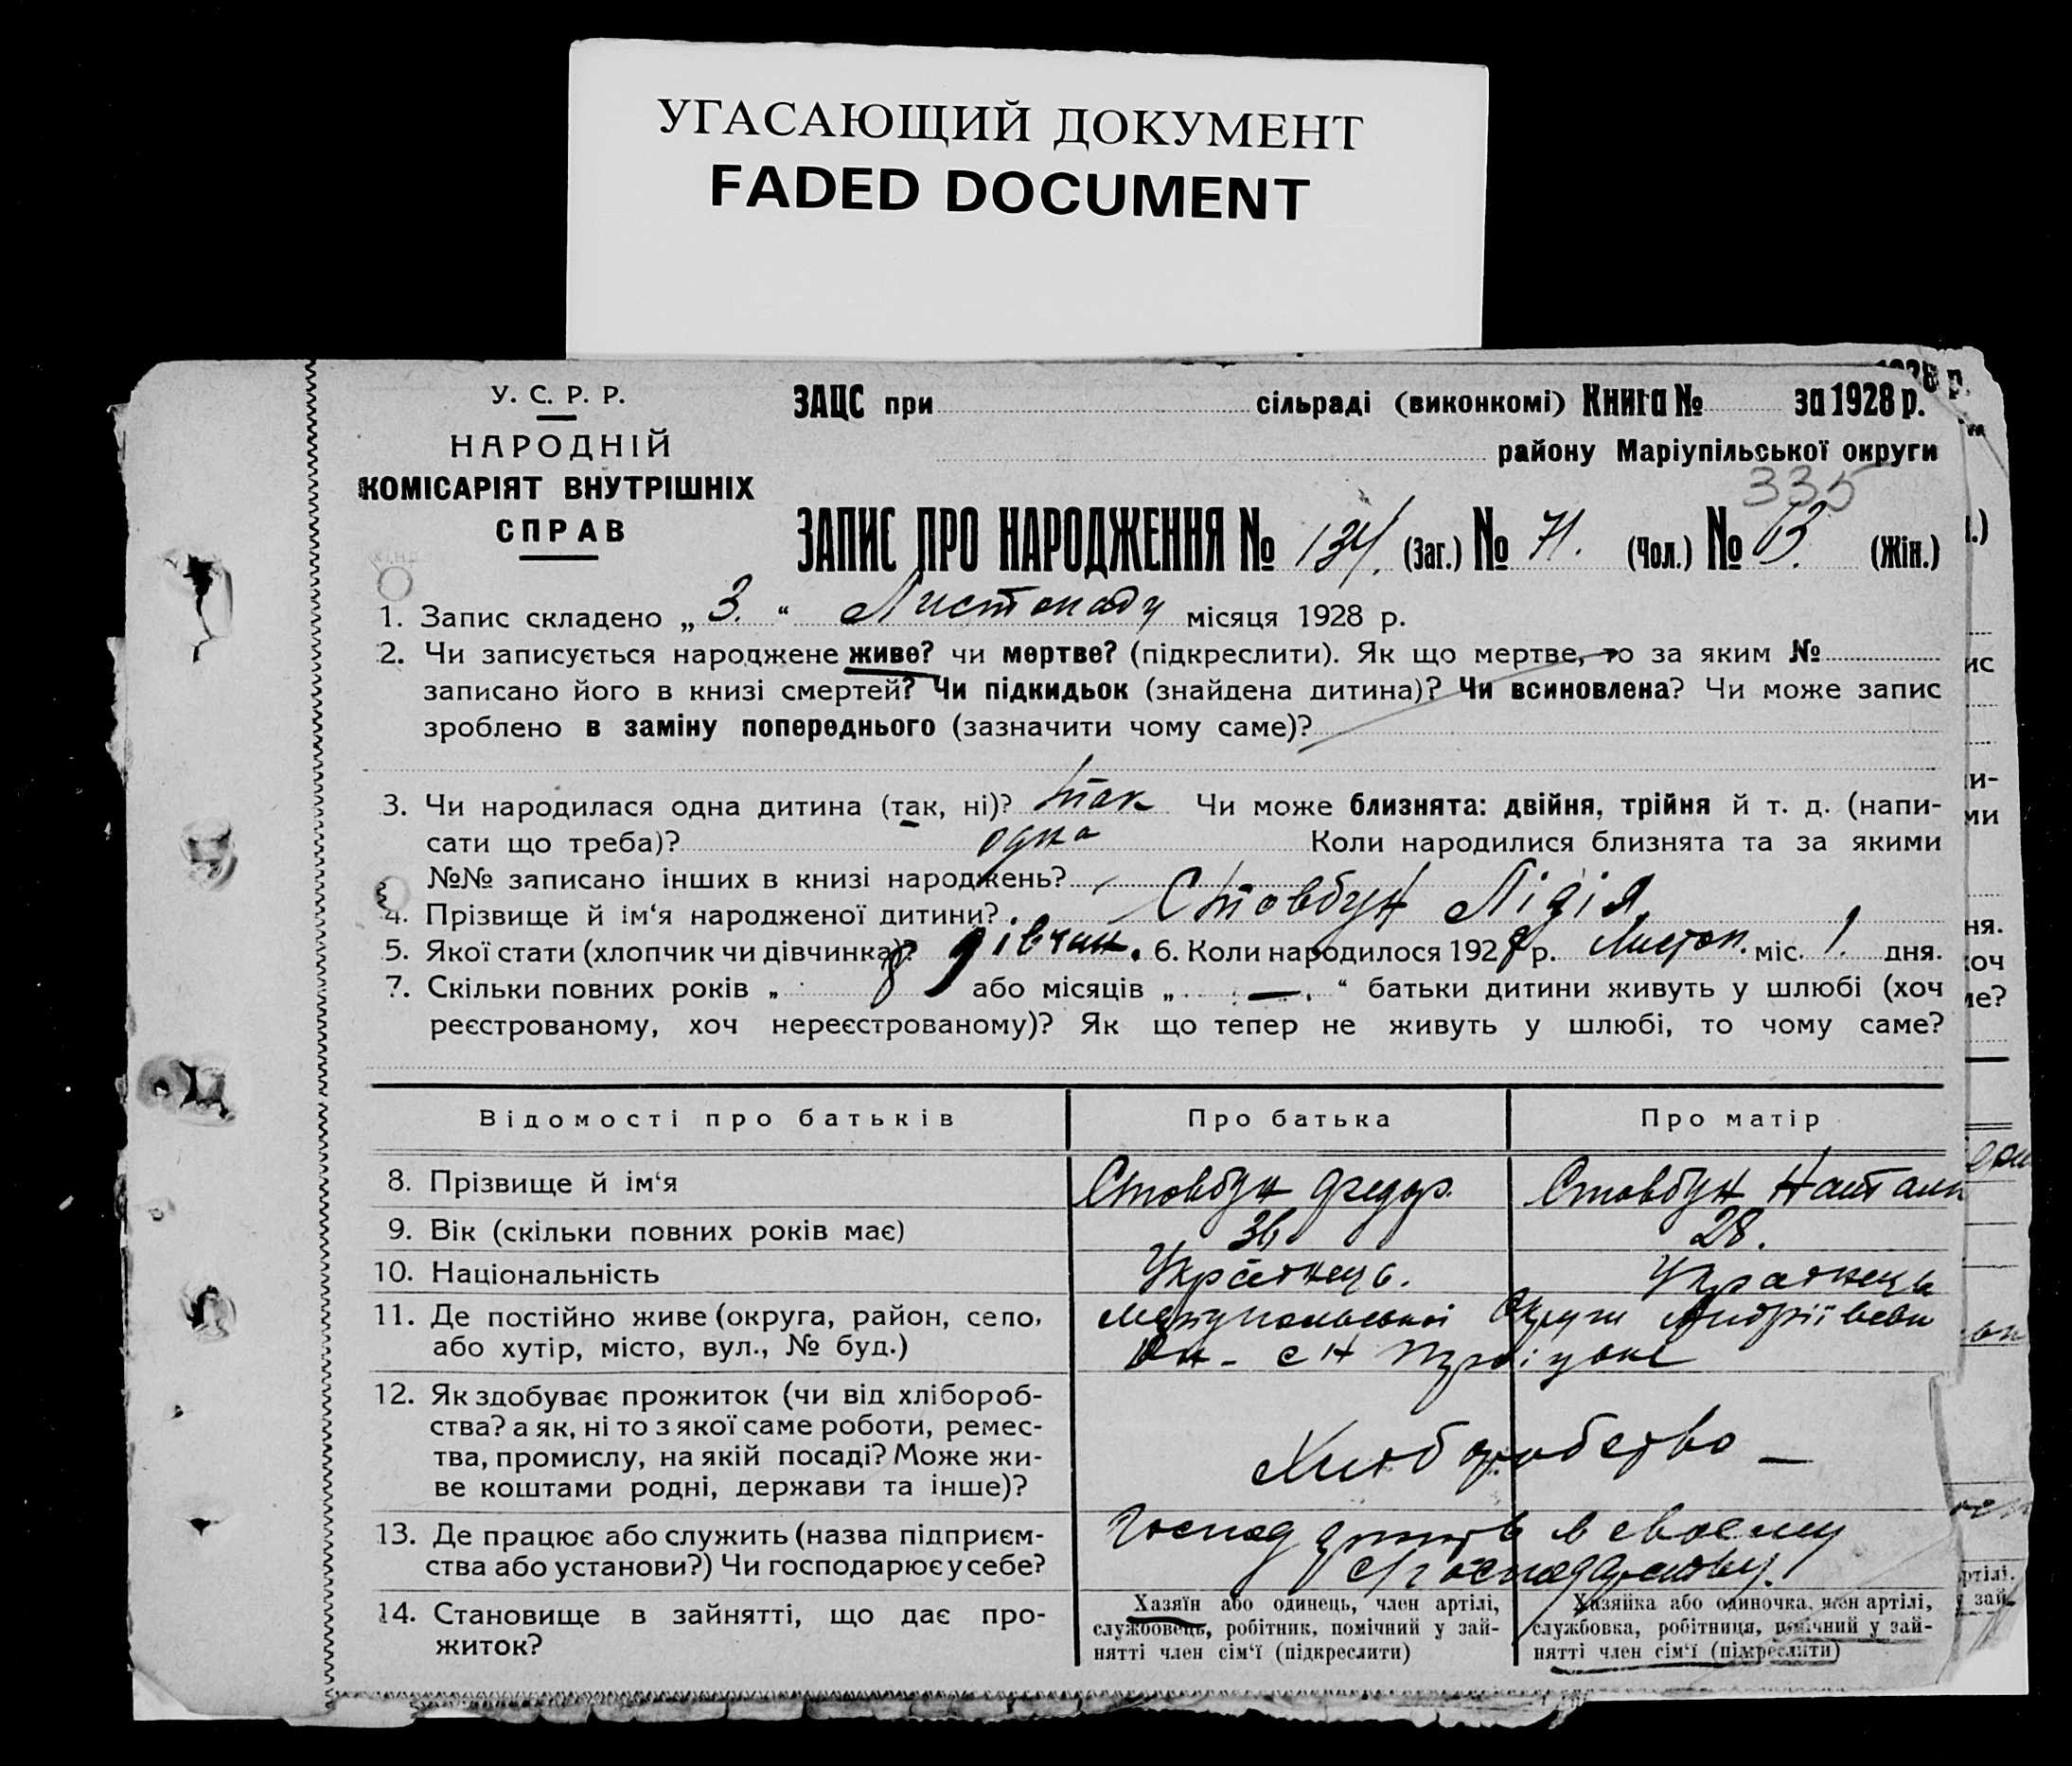 УГАСАЮЩИЙ ДОКУМЕНТ
FADED DOCUMENT
У. С. Р. Р.
НАРОДНІЙ
КОМІСАРІЯТ ВНУТРІШНІХ
СПРАВ
ЗАЦС при сільраді (виконкомі) Книга № за 1928 р.
району Маріупільської округи
335
ЗАПИС ПРО НАРОДЖЕННЯ № 134. (Заг.) № 71. (Чол.) № 63. (Жін.)
1. Запис складено „ 3. “ Листопаду місяця 1928 р.
2. Чи записується народжене живе? чи мертве? (підкреслити). Як що мертве, то за яким №
записано його в книзі смертей? Чи підкидьок (знайдена дитина)? Чи всиновлена? Чи може запис
зроблено в заміну попереднього (зазначити чому саме)?
3. Чи народилася одна дитина (так, ні)? так Чи може близнята: двійня, трійня й т. д. (напи-
сати що треба)? одна Коли народилися близнята та за якими
№№ записано інших в книзі народжень?
4. Прізвище й ім‘я народженої дитини? Стовбун Лідія
5. Якої стати (хлопчик чи дівчинка)? дівчин. 6. Коли народилося 1928 р. Листоп. міс. 1. дня.
7. Скільки повних років „ 8 або місяців „ — “ батьки дитини живуть у шлюбі (хоч
реєстрованому, хоч нереєстрованому)? Як що тепер не живуть у шлюбі, то чому саме?
Відомості про батьків Про батька Про матір
8. Прізвище й ім‘я Стовбун Федор. Стовбун Наталі
9. Вік (скільки повних років має) 36 28.
10. Національність Українець. Українець
11. Де постійно живе (округа, район, село, Маріупольської Округи Андріївськ
або хутір, місто, вул., № буд.)
12. Як здобуває прожиток (чи від хлібороб-
ства? а як, ні то з якої саме роботи, ремес-
тва, промислу, на якій посаді? Може жи-
ве коштами родні, держави та інше)?
Хліборобство —
13. Де працює або служить (назва підприєм- в своєму
ства або установи?) Чи господарює у себе?
14. Становище в зайнятті, що дає про-
житок?
Хазяїн або одинець, член артілі,
службовець, робітник, помічний у зай-
нятті член сім‘ї (підкреслити)
Хазяйка або одиночка, член артілі,
службовка, робітниця, помічний у зай-
нятті член сім‘ї (підкреслити)